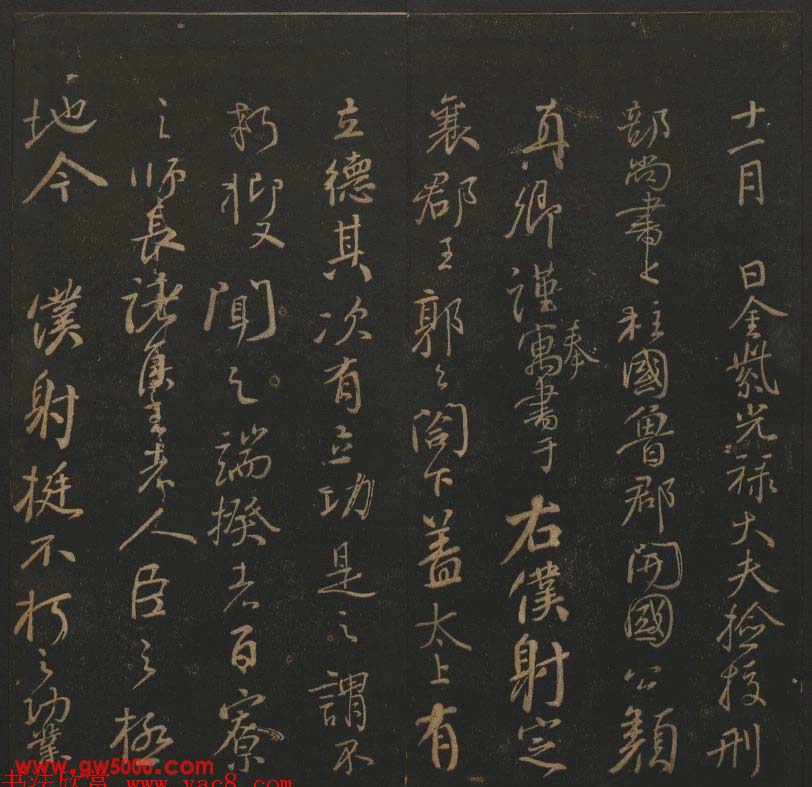 十一月 日金紫光祿大夫檢校刑
部尚書上柱國魯郡開國公顏
真卿謹奉寓書于 右僕射定
襄郡王郭公閤下蓋太上有
立德其次有立功是之謂不
朽抑又聞之端揆者百寮
之師長諸侯王者人臣之極
地今 僕射挺不朽之功業
www.gw5000.com
书法欣赏 www.yac8.com